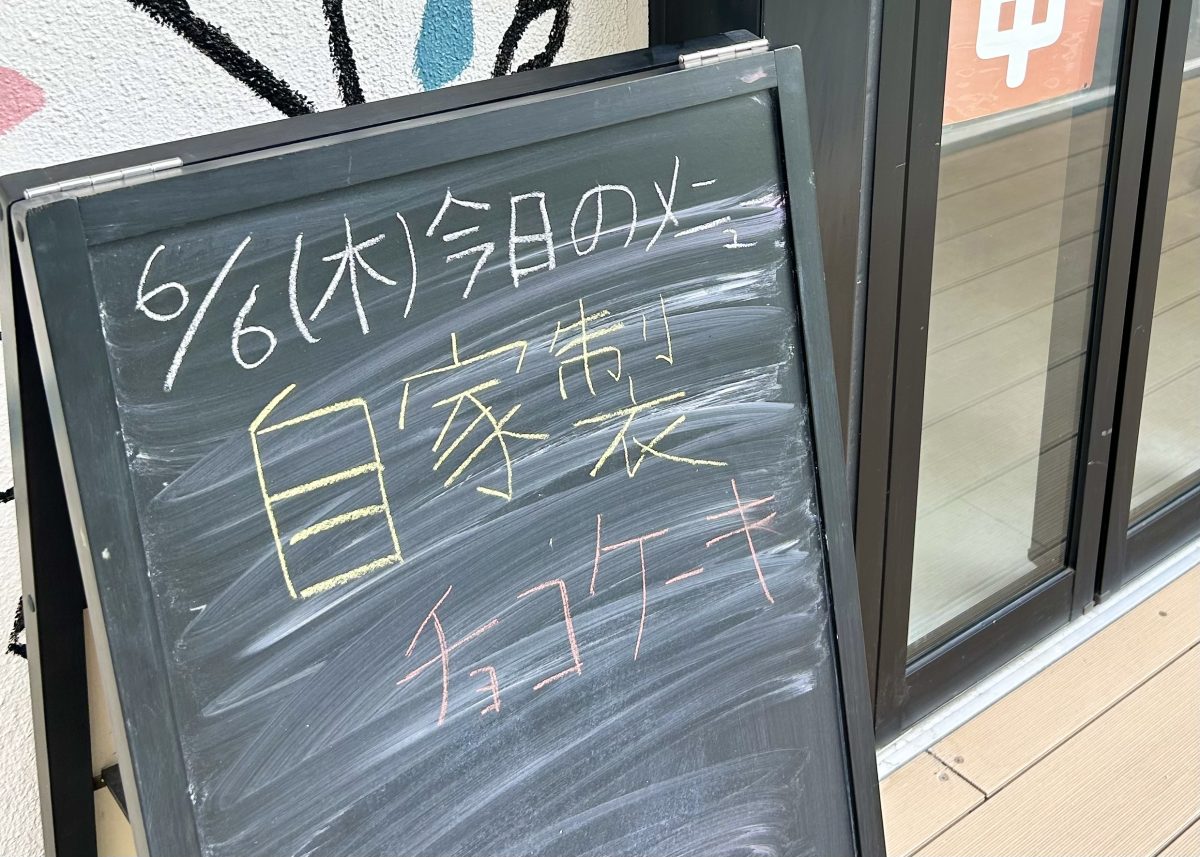 6/6(木)今日のメニュー
自家製
チョコケーキ
中